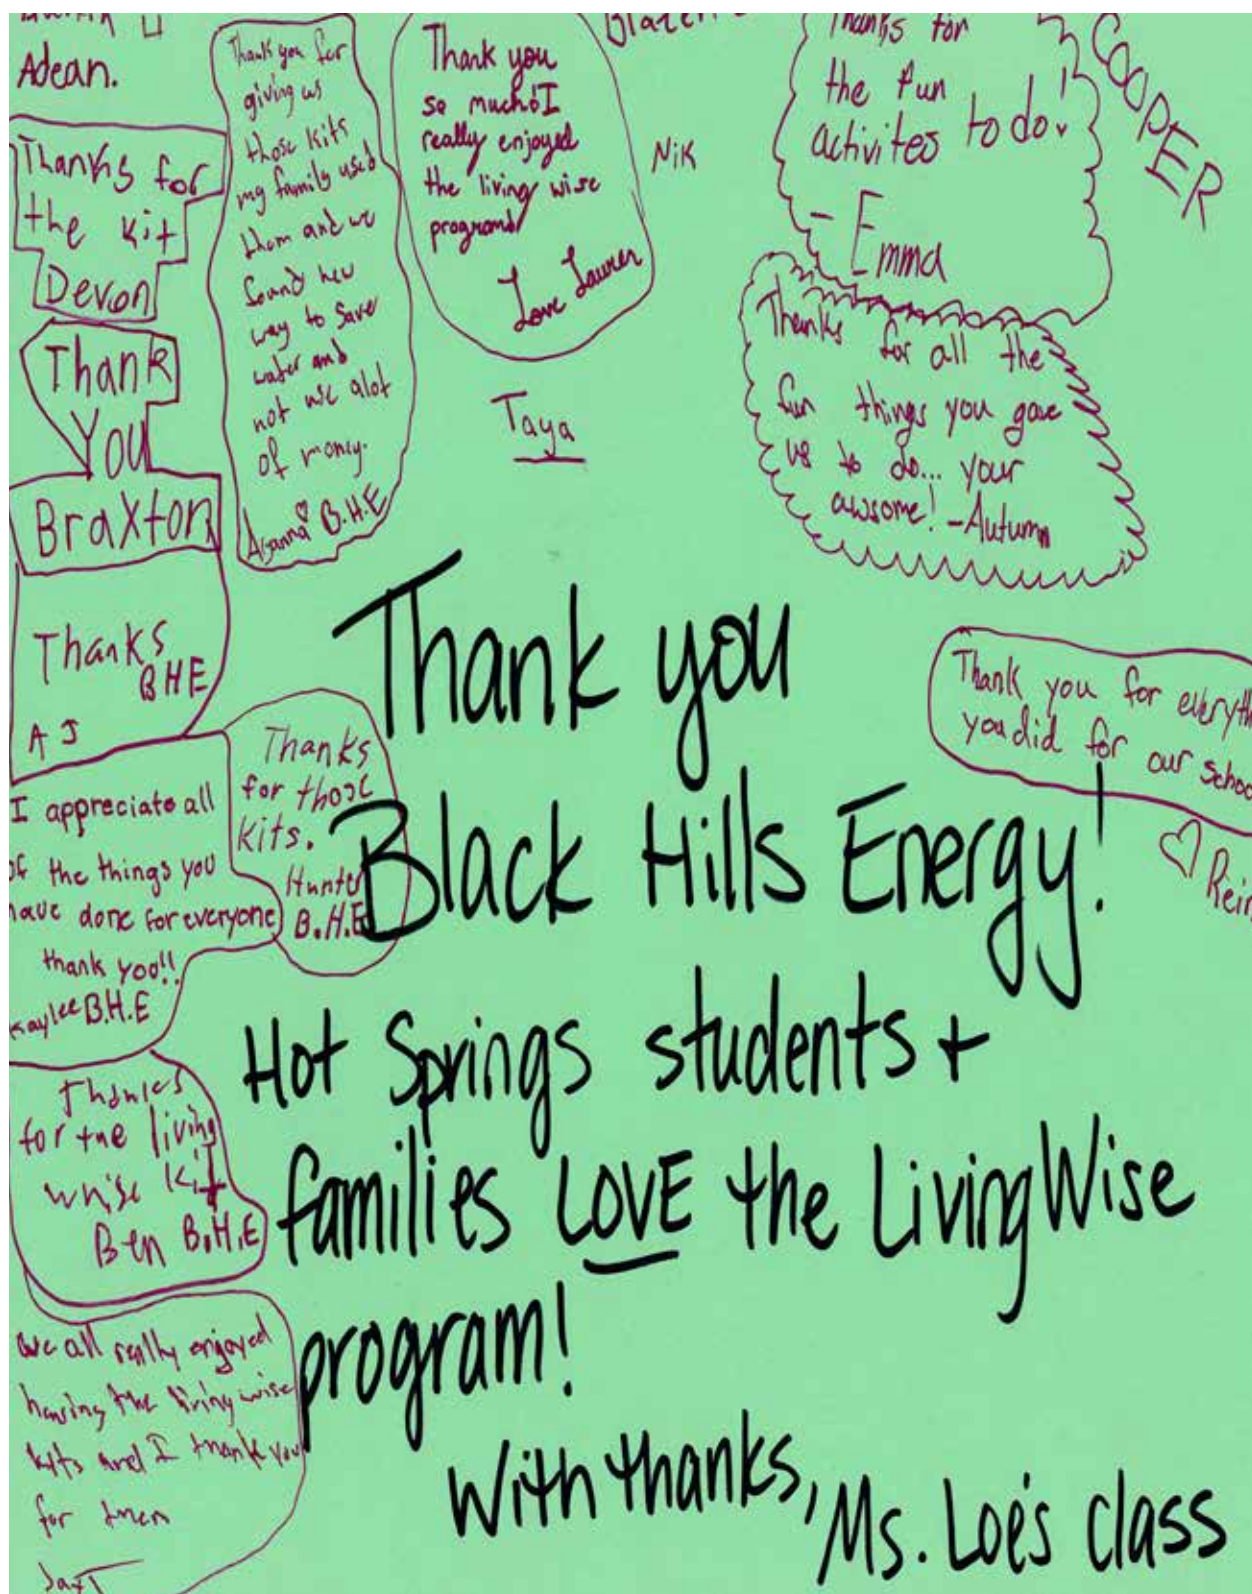 Adean.
Thanks for
the kit
Devon
Thank
You
Braxton
Thanks
BHE
AJ
I appreciate all
of the things you
have done for everyone
thank yoo!!
kaylee B.H.E
Thanks
for the living
whise kit
Ben B.H.E
we all really enjoyed
having the living wise
kits and I thank you
for them
Thank you for
giving us
those kits
my family used
them and we
found new
way to save
water and
not use alot
of money.
B.H.E
Thanks
for those
kits.
Hunter
B.H.E
Thank you
so much! I
really enjoyed
the living wise
program!
Love Lauren
Taya
Nik
Thanks for
the fun
activites to do!
-Emma
COOPER
Thanks for all the
fun things you gave
us to do... your
awsome! -Autumn
Thank you for everyth
you did for our schoo
Rein
Thank you
Black Hills Energy!
Hot Springs students +
families LOVE the LivingWise
program!
With thanks,
Ms. Loe's class